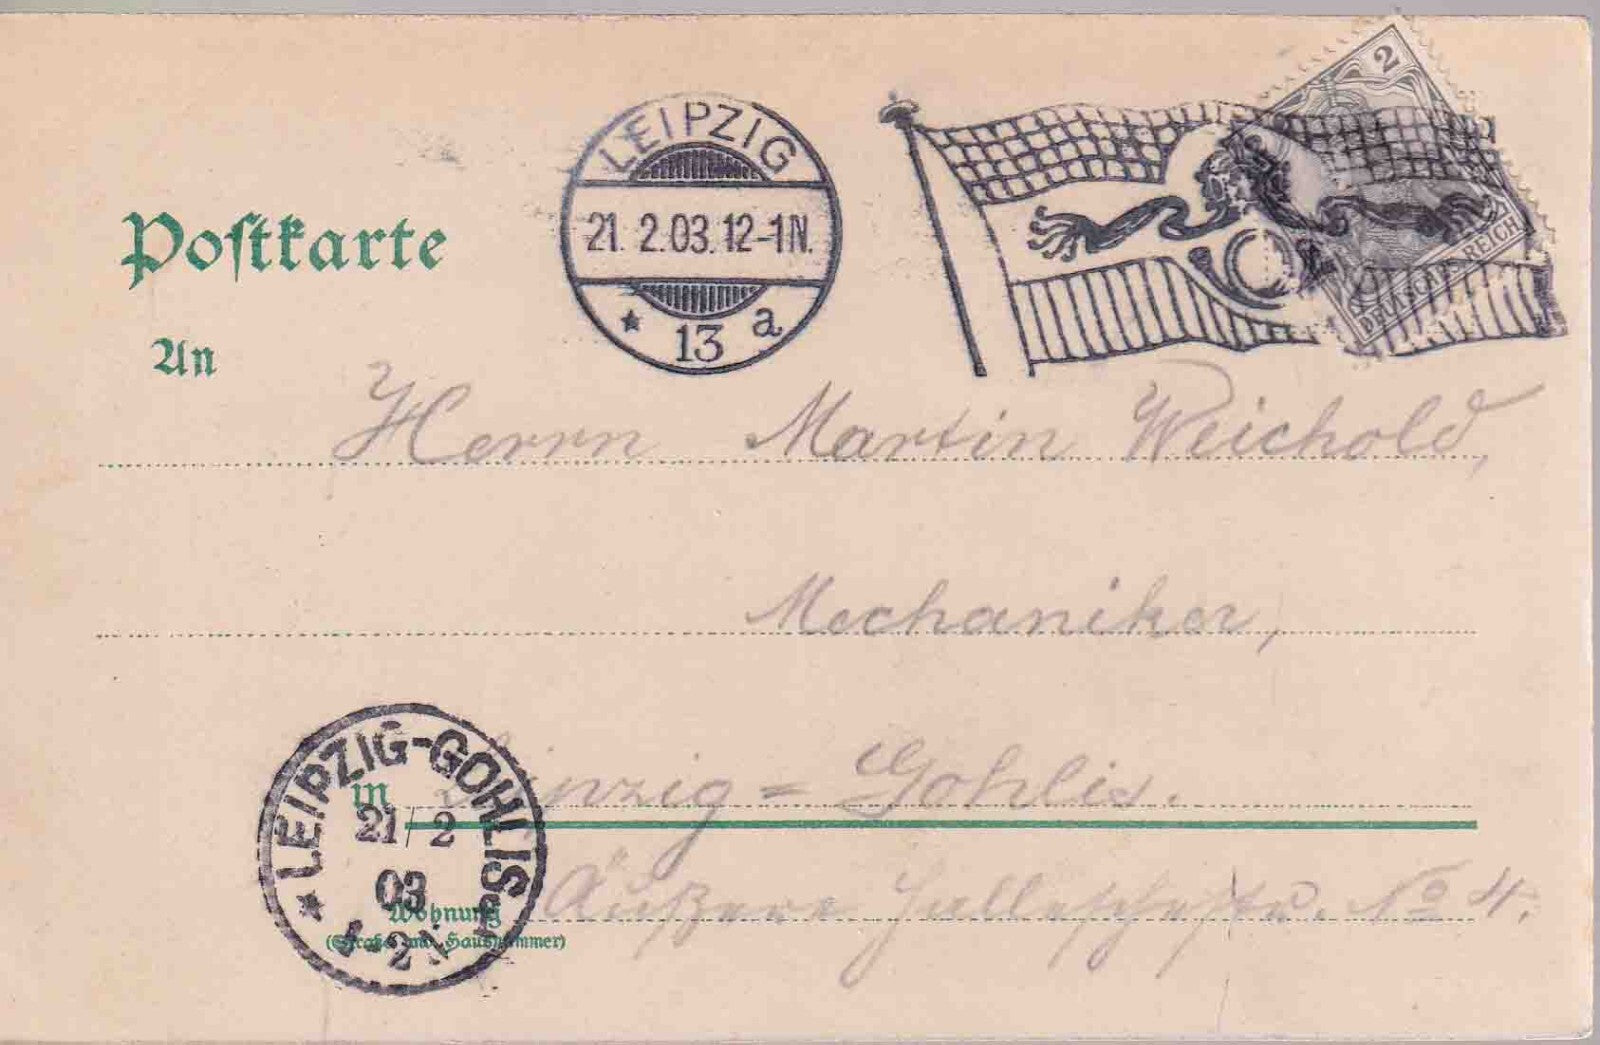 LEIPZIG
21. 2.03. 12-1N.
* 13 a
2
DEUTSCHES REICH
Postkarte
An
Herrn Martin Weichold,
Mechaniker,
in Leipzig = Gohlis.
Wohnung Äußere Hallesche Str. No 4.
(Straße und Hausnummer)
* LEIPZIG-GOHLIS
21/2
03
1-2N